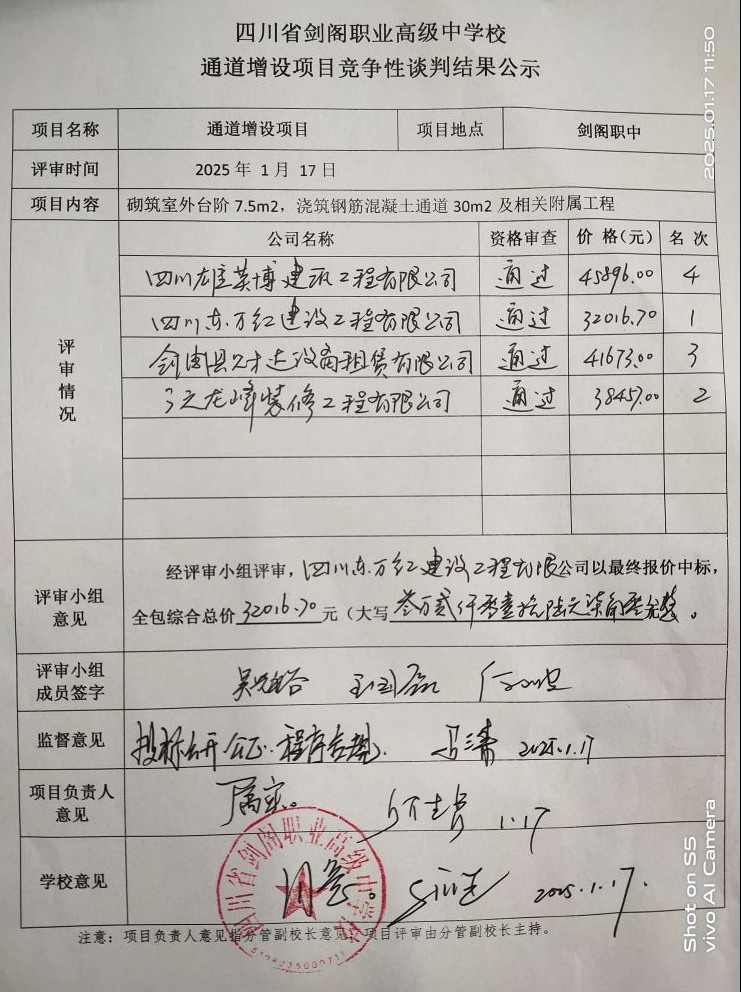 四川省剑阁职业高级中学校
通道增设项目竞争性谈判结果公示
项目名称 通道增设项目 项目地点 剑阁职中
评审时间 2025年 1月 17日
项目内容 砌筑室外台阶 7.5m2，浇筑钢筋混凝土通道 30m2 及相关附属工程
评审情况
公司名称 资格审查 价 格(元) 名 次
四川雄英博建筑工程有限公司 通过 45896.00 4
四川东万红建设工程有限公司 通过 32016.70 1
剑阁县 建设 租赁有限公司 通过 41673.00 3
龙峰装修工程有限公司 通过 38457.00 2
评审小组
意见
经评审小组评审，四川东万红建设工程有限公司以最终报价中标，
全包综合总价 32016.70 元（大写 叁万贰仟零壹拾陆元柒角零分整 。
评审小组
成员签字
监督意见 投标公开 公正.程序合规. 2025.1.17
项目负责人
意见
属实。 1.17
学校意见 同意。 2025.1.17.
四川省剑阁职业高级中学校
注意：项目负责人意见指分管副校长意见，项目评审由分管副校长主持。
2025.01.17 11:50
Shot on S5
vivo AI Camera